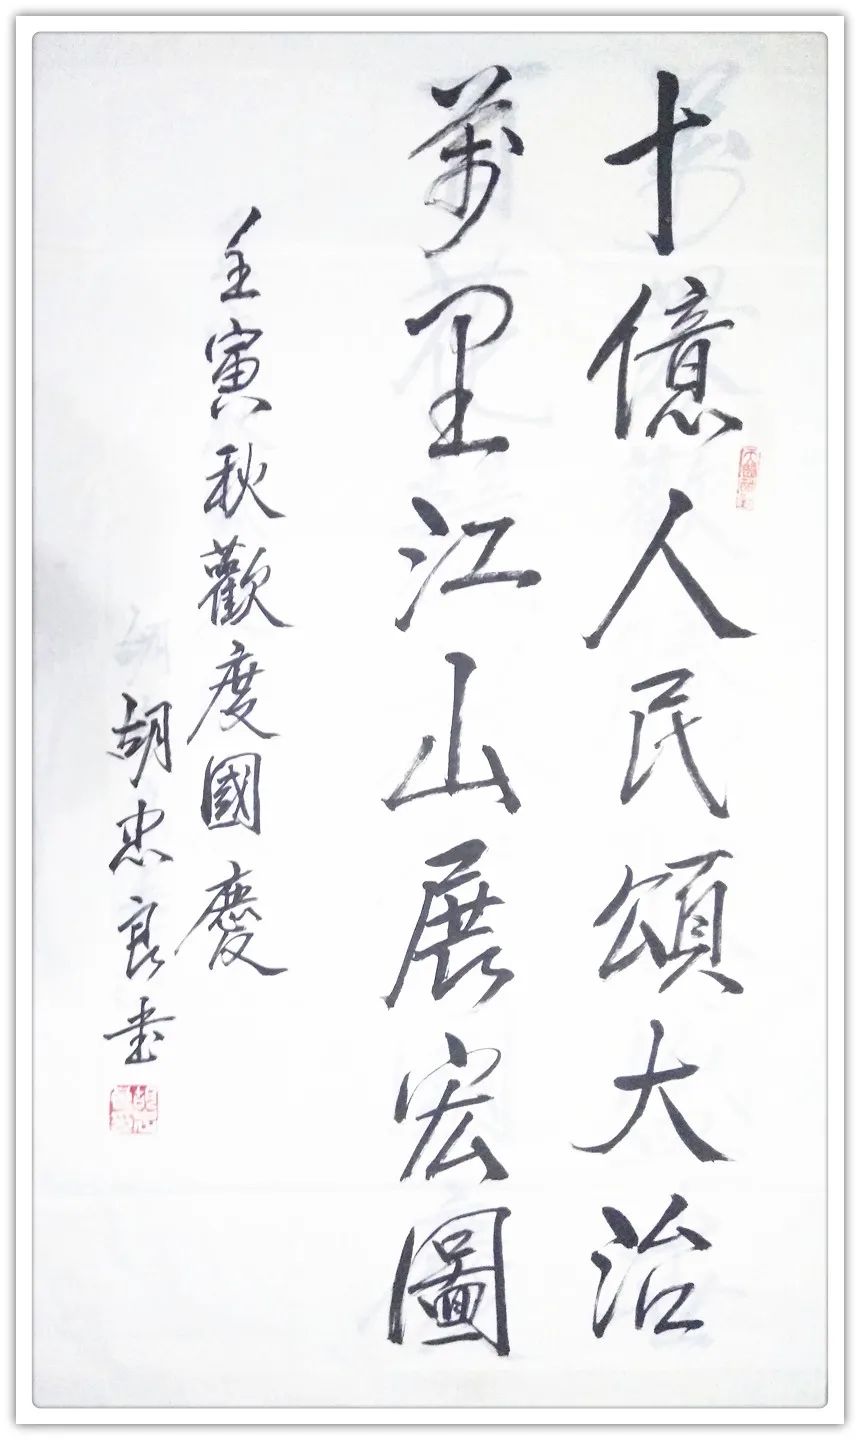 十億人民頌大治
萬里江山展宏圖
壬寅秋歡度國慶
胡忠良書